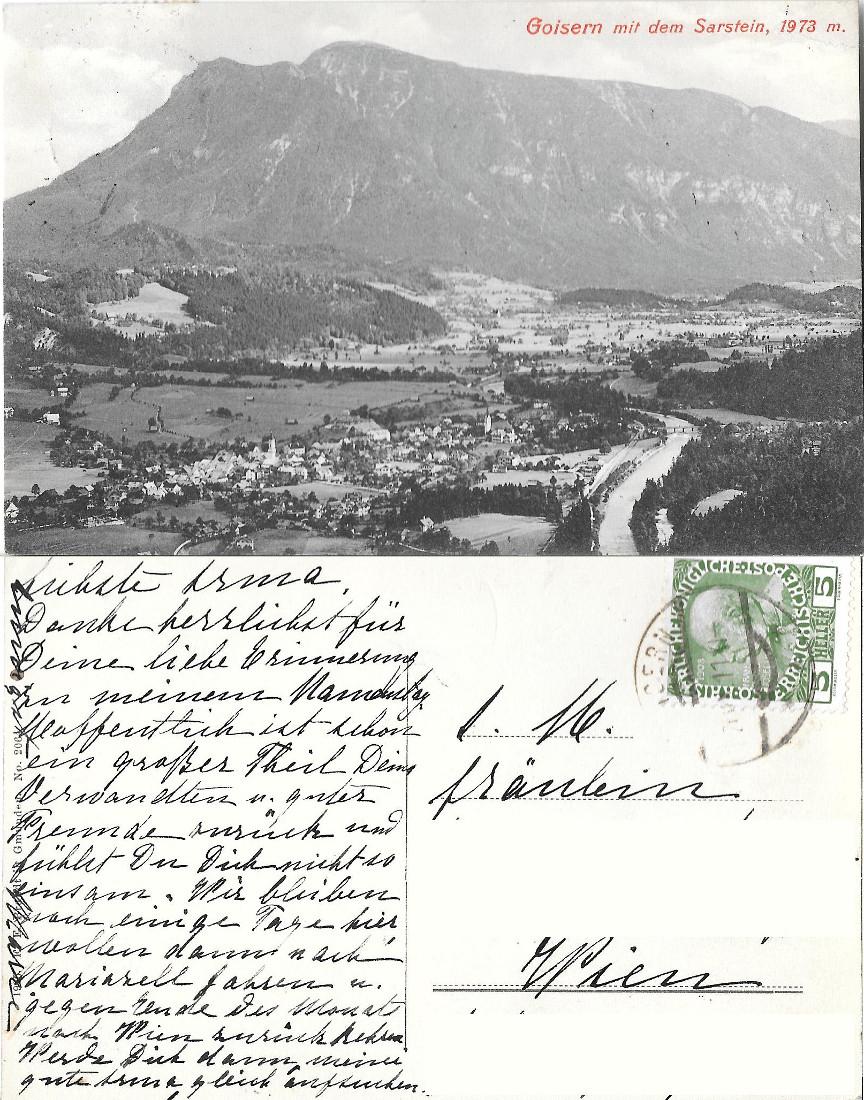 Goisern mit dem Sarstein, 1973 m.
Liebste Irma,
Danke herzlichst für
Deine liebe Erinnerung
zu meinem Namenstag
Hoffentlich ist schon
ein großer Theil Deine
Verwandten u. guter
Freunde zurück und
fühlst Du Dich nicht so
einsam. Wir bleiben
noch einige Tage hier
wollen dann nach
Mariazell fahren u.
gegen Ende des Monats
nach Wien zurück kehren
Werde Dich dann, meine
gute Irma gleich aufsuchen.
No.
5
HELLER
5
Fräulein
Wien